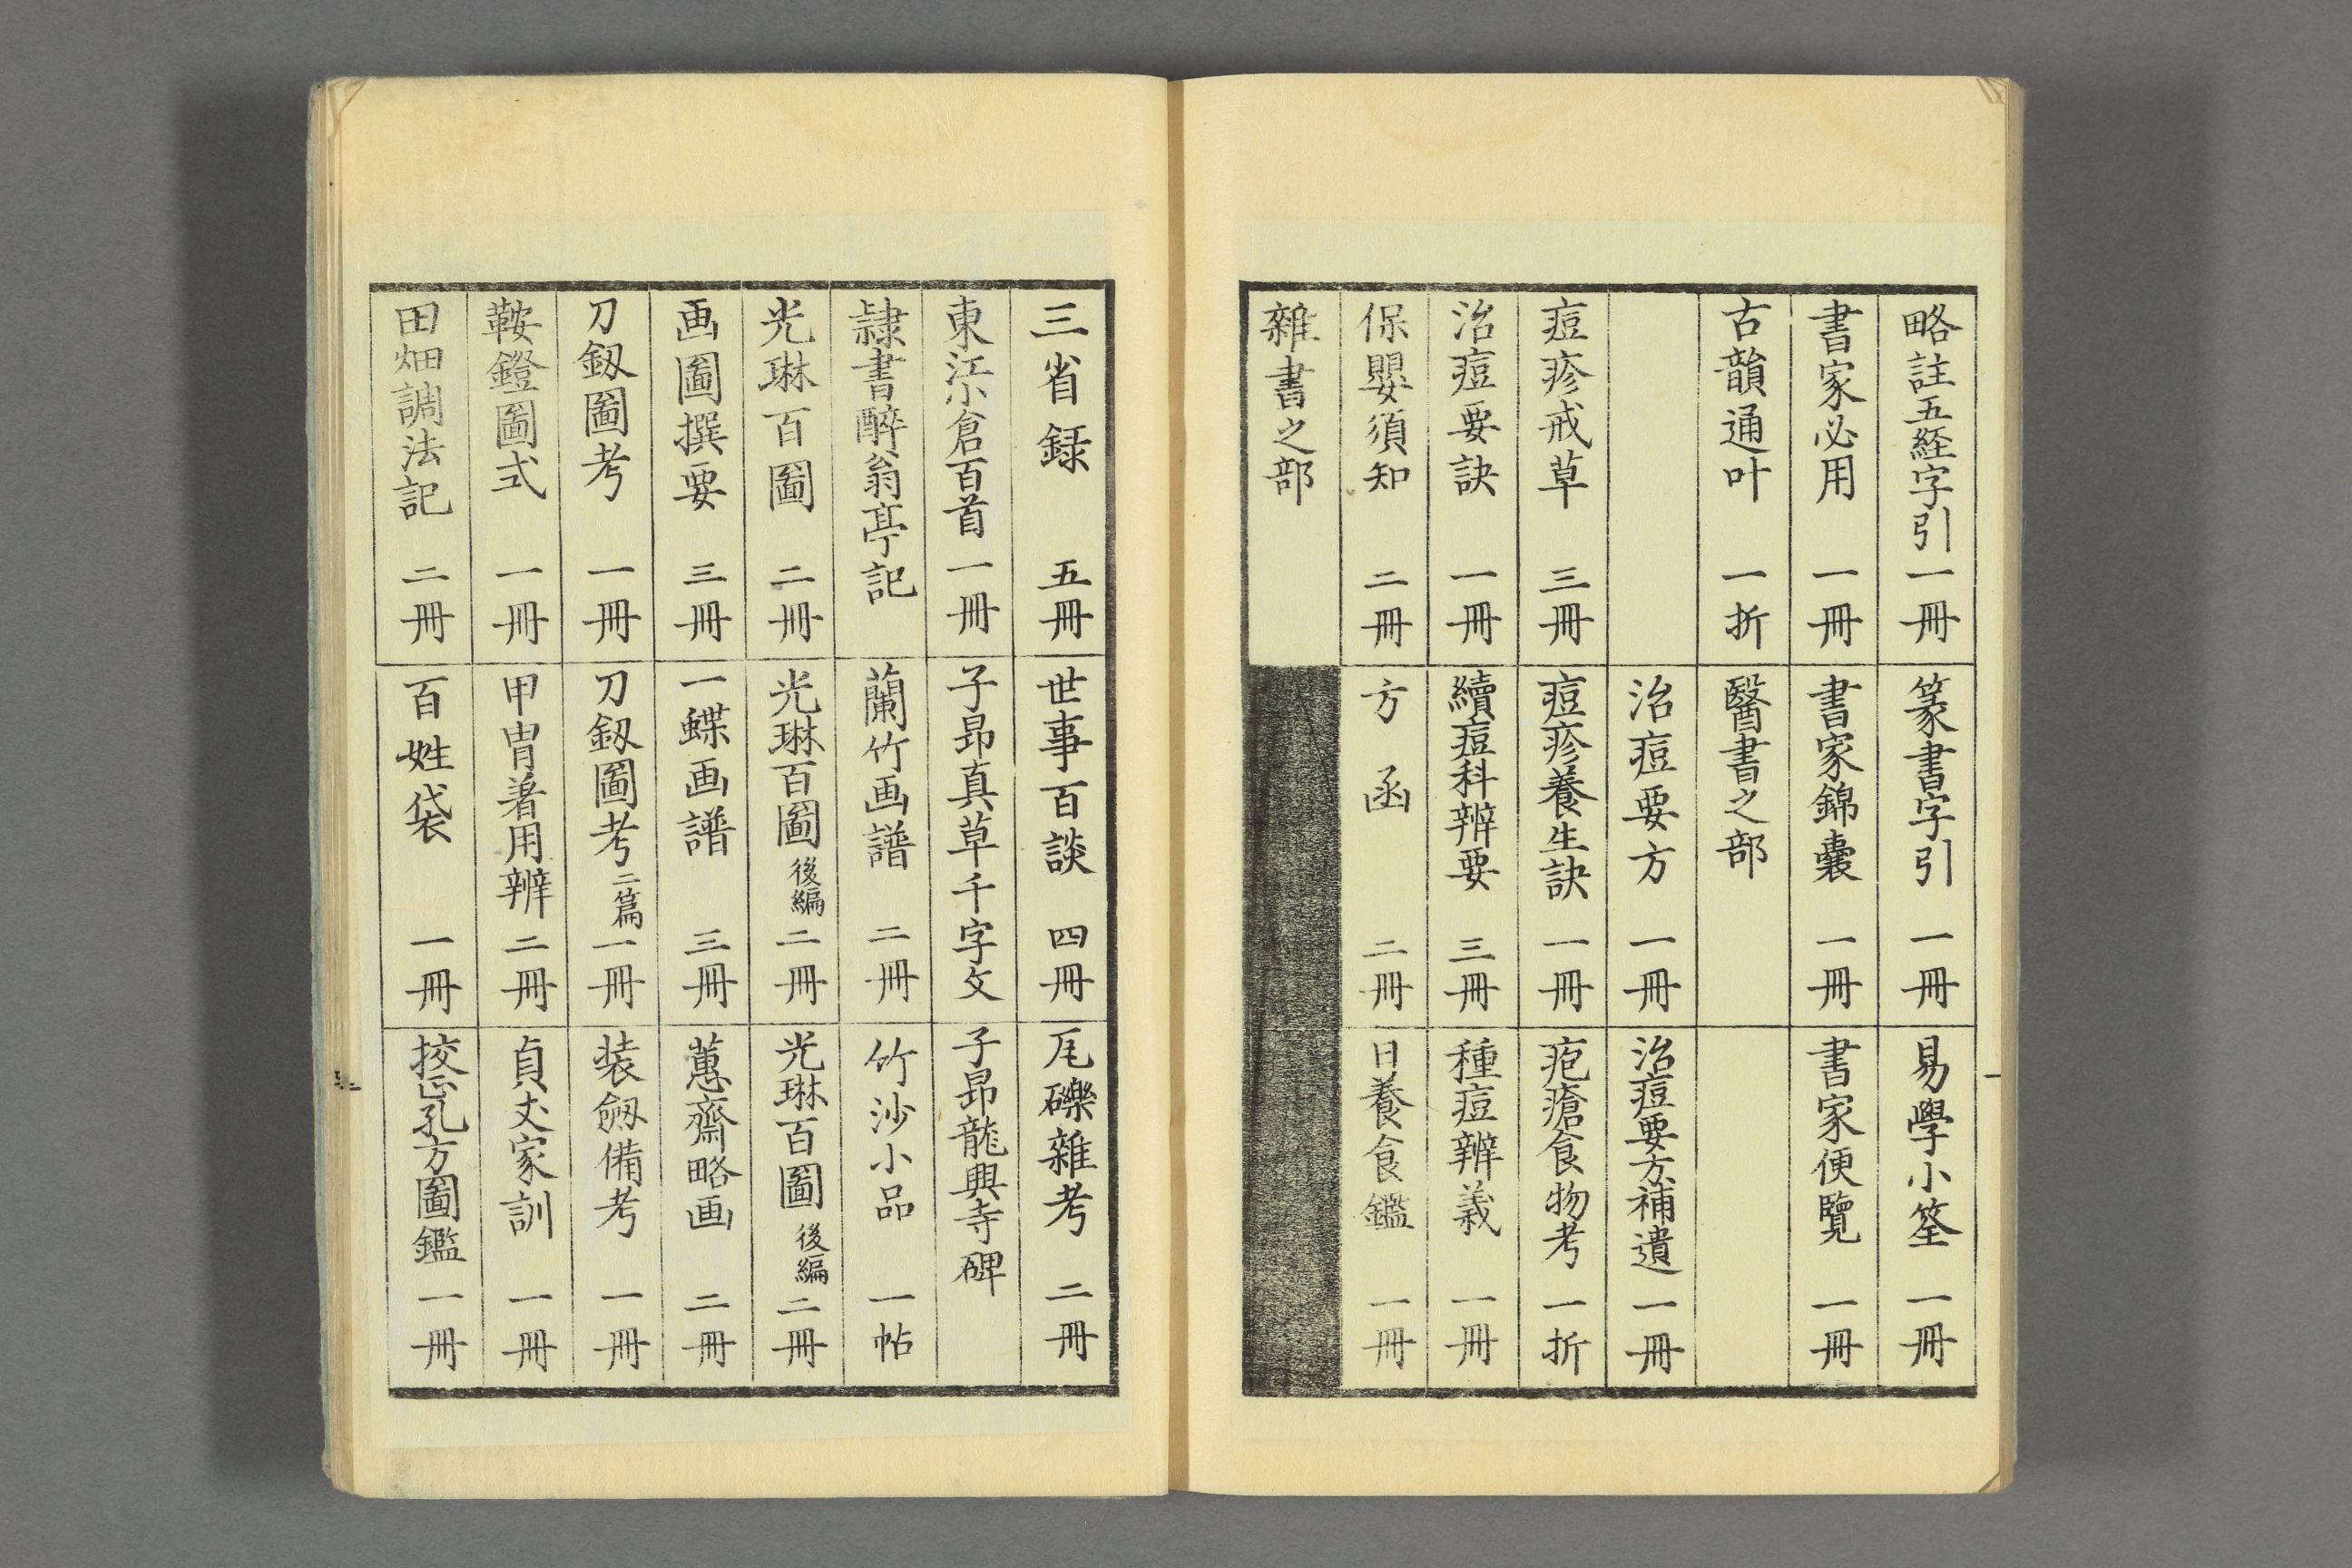 略註五経字引一冊
篆書字引 一冊
易學小筌 一冊
書家必用 一冊
書家錦囊 一冊
書家便覽 一冊
古韻通叶 一折
醫書之部
治痘要方 一冊
治痘要方補遺 一冊
痘疹戒草 三冊
痘疹養生訣 一冊
疱瘡食物考 一折
治痘要訣 一冊
續痘科辨要 三冊
種痘辨義 一冊
保嬰須知 二冊
方函 二冊
日養食鑑 一冊
雜書之部
三省録 五冊
世事百談 四冊
瓦礫雜考 二冊
東江小倉百首 一冊
子昻真草千字文
子昻龍興寺碑
隷書醉翁亭記
蘭竹画譜 二冊
竹沙小品 一帖
光琳百圖 二冊
光琳百圖後編 二冊
光琳百圖後編 二冊
画圖撰要 三冊
一蝶画譜 三冊
蕙齋略画 二冊
刀釼圖考 一冊
刀釼圖考二篇 一冊
装劔備考 一冊
鞍鐙圖式 一冊
甲冑著用辨 二冊
貞丈家訓 一冊
田畑調法記 二冊
百姓袋 一冊
挍正孔方圖鑑 一冊